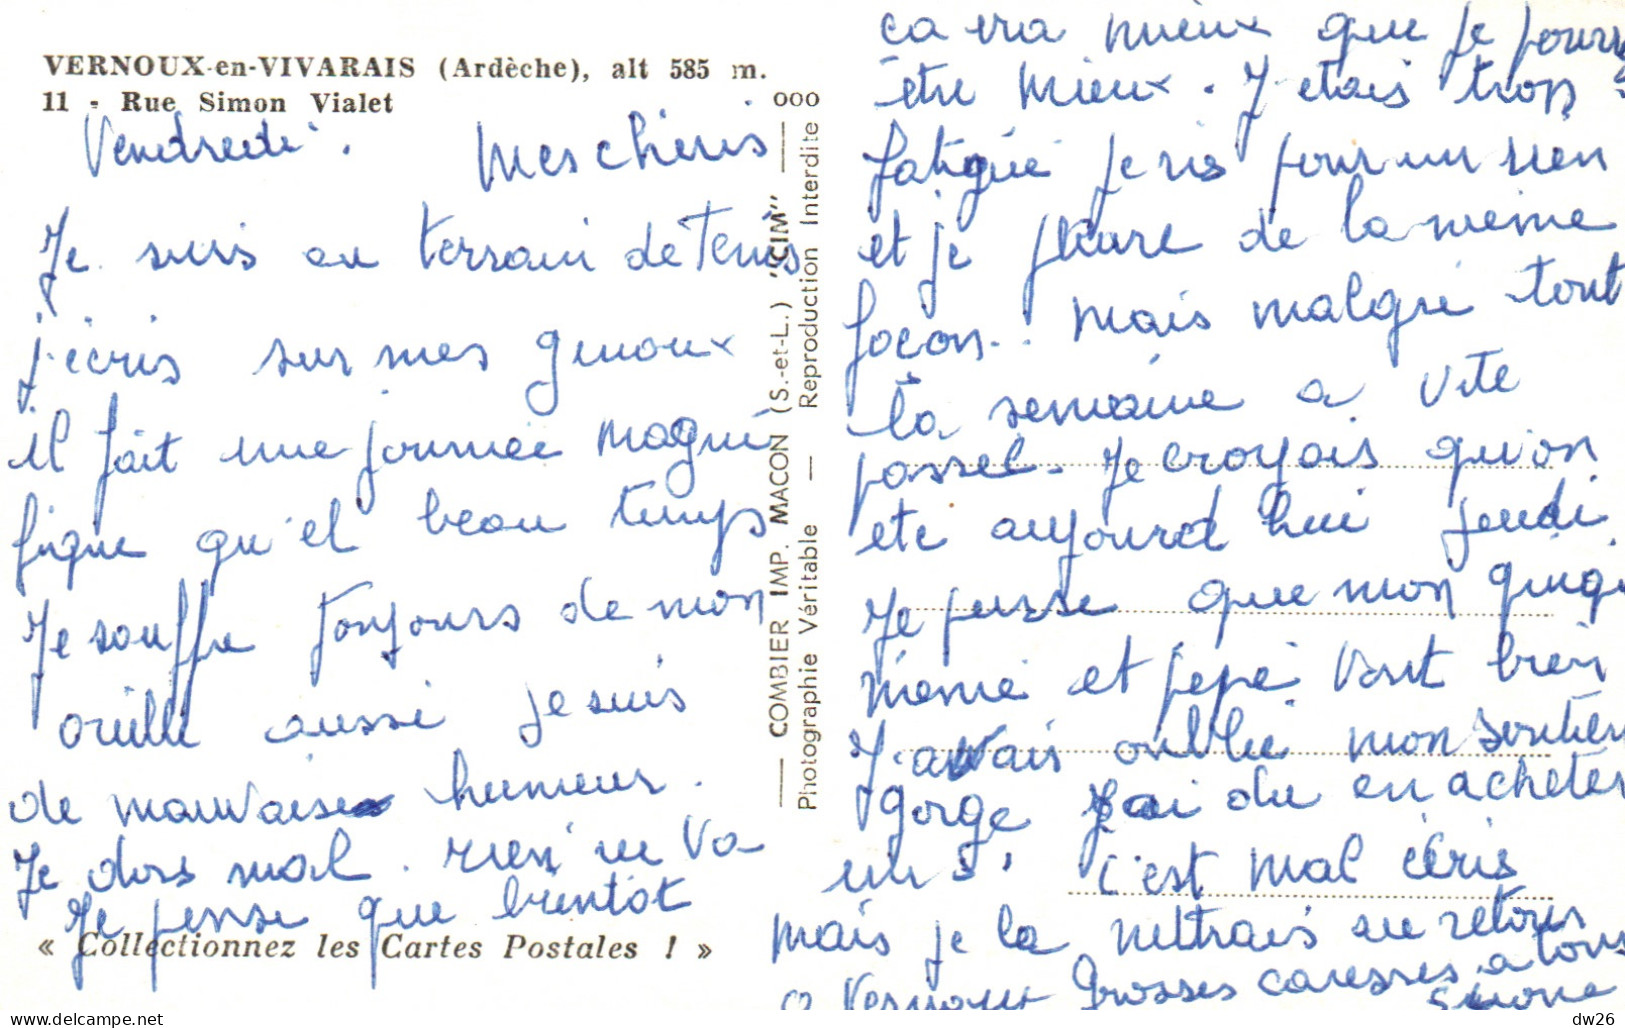 VERNOUX-en-VIVARAIS (Ardèche), alt 585 m.
11 - Rue Simon Vialet
Vendredi. Mes chéris
Je suis au terrain de Tenis
j'ecris sur mes genoux
il fait une journée magni
fique qu'el beau temps
Je souffre toujours de mon
oreille aussi je suis
de mauvaise humeur.
Je dors mal. rien ne va
Je pense que bientôt
« Collectionnez les Cartes Postales ! »
ooo
COMBIER IMP. MACON (S.-et-L.) "CIM"
Photographie Véritable — Reproduction Interdite
ça ira mieux que je
être mieux. J'etais trop
fatigué je ris pour un rien
et je pleure de la même
façon. Mais malgré tout
la semaine a vite
passel. Je croyais qu'on
ete aujourd hui jeudi
Je pense que mon
mémé et pépé vont bien
J'avais oublié mon soutien
gorge j'ai du en acheter
un. c'est mal écris
mais je la mettrais au retour
a Vernoux Grosses caresses a tous
Simone
dw26